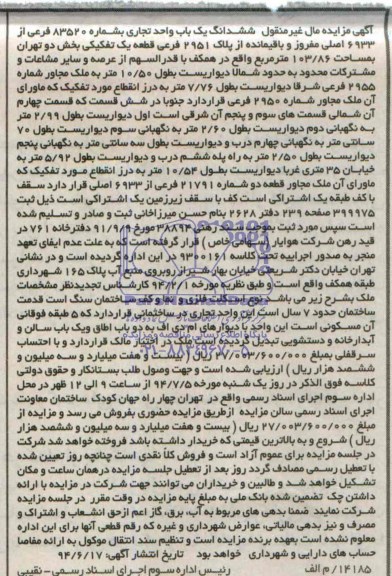 آگهی مزایده مال غیرمنقول ششدانگ یک باب واحد تجاری بشماره ۸۳۵۲۰ فرعی از
۶۹۳۳ اصلی مفروز و باقیمانده از پلاک ۲۹۵۱ فرعی قطعه یک تفکیکی بخش دو تهران
بمساحت ۱۰۳/۸۶ مترمربع واقع در همکف با قدرالسهم از عرصه و سایر مشاعات و
مشترکات محدود به حدود شمالا دیواریست بطول ۱۰/۵۰ متر به ملک مجاور شماره
۲۹۵۵ فرعی شرقا دیواریست بطول ۷/۷۶ متر به درز انقطاع مورد تفکیک که ماورای
آن ملک مجاور شماره ۲۹۵۰ فرعی قراردارد جنوبا در شش قسمت که قسمت چهارم
آن شمالی قسمت های سوم و پنجم آن شرقی است اول دیواریست بطول ۲/۹۹ متر
به نگهبانی دوم دیواریست بطول ۲/۶۰ متر به نگهبانی سوم دیواریست بطول ۷۰
سانتی متر به نگهبانی چهارم درب و دیواریست بطول سه سانتی متر به نگهبانی پنجم
دیواریست بطول ۲/۵۰ متر به راه پله ششم درب و دیواریست بطول ۵/۹۲ متر به
خیابان ۳۵ متری غربا دیواریست بطول ۱۰/۵۴ متر به درز انقطاع مورد تفکیک که
ماورای آن ملک مجاور قطعه دو شماره ۲۱۷۹۱ فرعی از ۶۹۳۳ اصلی قرار دارد سقف
با کف طبقه یک اشتراکی است کف با سقف زیرزمین یک اشتراکی است ذیل ثبت
۳۹۹۹۷۵ صفحه ۲۳۹ دفتر ۲۶۲۸ بنام حسن میرزاخانی ثبت و صادر و تسلیم شده
است سپس مورد ثبت بموجب سند رهنی ۳۸۸۹۴ مورخ ۹۱/۹/۱ دفترخانه ۷۶۱ در
قید رهن شرکت هوایار (سهامی خاص) قرار گرفته است که به علت عدم ایفای تعهد
منجر به صدور اجراییه تحت کلاسه در این اداره گردیده است و در نشانی
تهران خیابان دکتر شریعتی خیابان بهار شیراز روبروی منبع آب پلاک ۱۶۵ شهرداری
طبقه همکف واقع است و طبق نظریه مورخه ۹۴/۲/۱ کارشناس تجدیدنظر مشخصات
ملک بشرح زیر می باشد
ساختمان حدود ۷ سال است این واحد تجاری در ساختمانی قراردارد که ۵ طبقه فوقانی
آن مسکونی است این واحد با دیوارهای ام دی اف به دو باب اطاق ویک باب سالن و
آبدارخانه و دستشویی تبدیل گردیده است ملک در اختیار مالک قراردارد و با احتساب
سرقفلی بمبلغ ۲۷/۰۰۳/۶۰۰/۰۰۰ ریال (بیست و هفت میلیارد و سه میلیون و
ششصد هزار ریال) ارزیابی شده است و جهت وصول طلب بستانکار و حقوق دولتی
کلاسه فوق الذکر در روز یک شنبه مورخه ۹۴/۷/۵ از ساعت ۹ الی ۱۲ ظهر در محل
اداره سوم اجرای اسناد رسمی واقع در تهران چهار راه جهان کودک ساختمان معاونت
اجرای اسناد رسمی سالن مزایده ازطریق مزایده حضوری بفروش می رسد و مزایده از
مبلغ ۲۷/۰۰۳/۶۰۰/۰۰۰ ریال (بیست و هفت میلیارد و سه میلیون و ششصد هزار
ریال) شروع و به بالاترین قیمتی که خریدار داشته باشد فروخته خواهد شد شرکت
در جلسه مزایده برای عموم آزاد است و فروش کلا نقدی است چنانچه روز تعیین شده
با تعطیل رسمی مصادف گردد روز بعد از تعطیل جلسه مزایده درهمان ساعت و مکان
تشکیل خواهد شد و طالبین و خریداران می توانند جهت شرکت در مزایده با ارائه
داشتن چک تضمین شده بانک ملی به مبلغ پایه مزایده در وقت مقرر در جلسه مزایده
شرکت نمایند ضمنا بدهی های مربوط به آب، برق، گاز اعم ازحق انشعاب و اشتراک و
مصرف و نیز بدهی مالیاتی، عوارض شهرداری و غیره که رقم قطعی آنها برای این اداره
معلوم نشده است بعهده برنده مزایده است و تنظیم سند انتقال موکول به ارائه مفاصا
حساب های دارایی و شهرداری خواهد بود تاریخ انتشار آگهی: ۹۴/۶/۱۷
۱۴۱۸۵/م الف رئیس اداره سوم اجرای اسناد رسمی - نقیبی